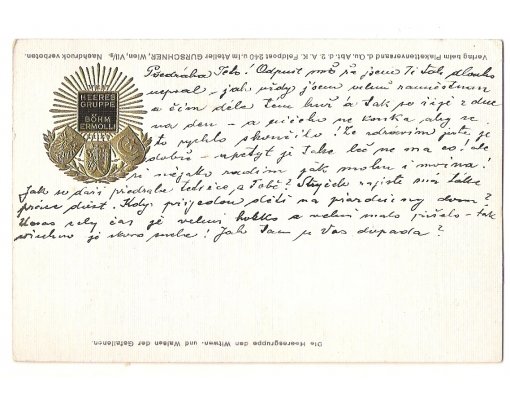 Verlag beim Plakettenversand d. Qu.-Abt. d. 2. A. K. Feldpost 240 u. im Atelier GURSCHNER, Wien, VIII/1. Nachdruck verboten.
HEERES
GRUPPE
BÖHM
ERMOLLI
Předrahá Teto! Odpusť mně že jsem Ti tak dlouho
nepsal – jak vždy jsem velmi zaměstnán
a čím déle tím hůř a tak to jde z dne
na den – a nikoho ne aby se
to rychlo skončilo! Že zdravím jste je
dobře – u je také leč ne ma co! ale
si nějako radím jak mohu i
Jak se daří předrahé tetičce a Tobě? Strýček zajisté má také
práce dost. Kdy přijedou děti na prázdniny domů?
U nás celý čas je velmi horko a velmi málo pršelo – tak
všechno je skoro! Jak tam u Vás dopadá?
Die Heeresgruppe den Witwen- und Waisen der Gefallenen.